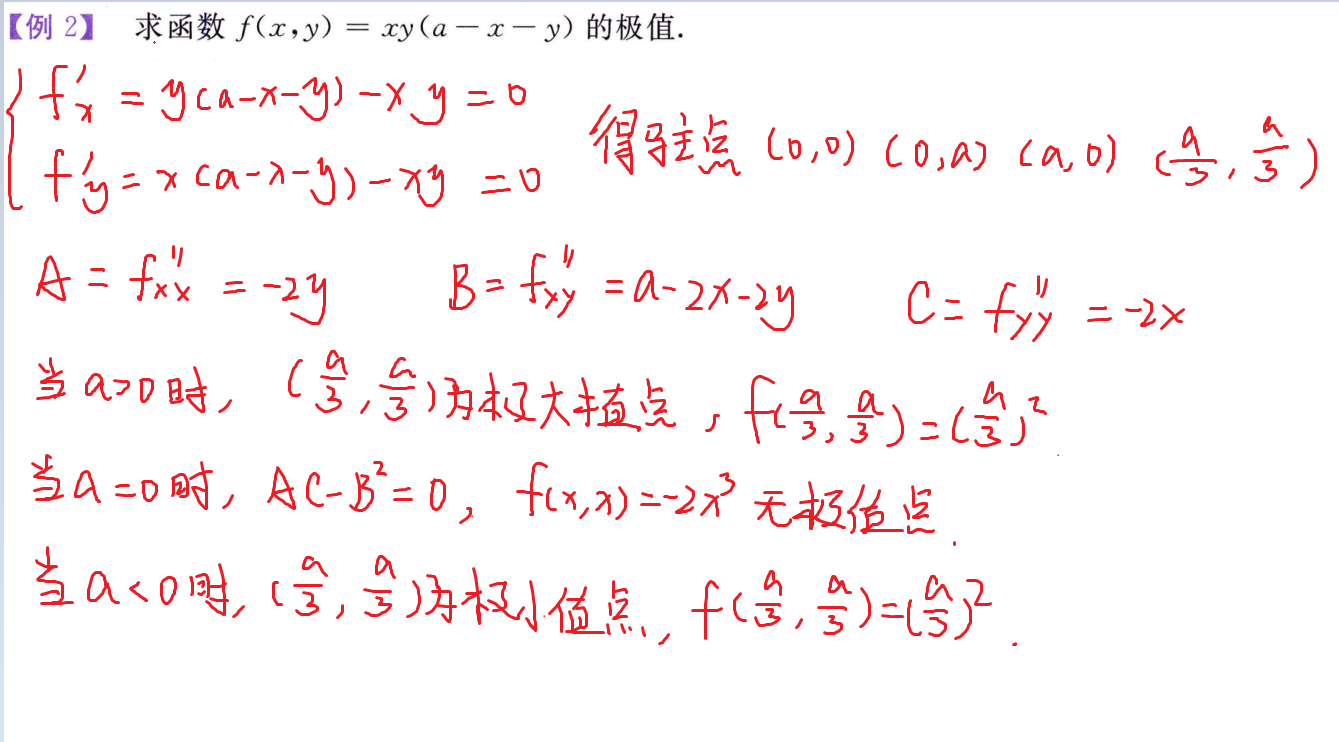 【例 2】 求函数 f(x,y) = xy(a − x − y) 的极值.
{ f'x = y(a-x-y) - xy = 0
f'y = x(a-x-y) - xy = 0 得驻点 (0,0) (0,a) (a,0) (a/3, a/3)
A = f''xx = -2y B = f''xy = a-2x-2y C = f''yy = -2x
当a>0时, (a/3, a/3)为极大值点, f(a/3, a/3) = (a/3)²
当a=0时, AC-B²=0, f(x,x)=-2x³ 无极值点.
当a<0时, (a/3, a/3)为极小值点, f(a/3, a/3)=(a/3)².